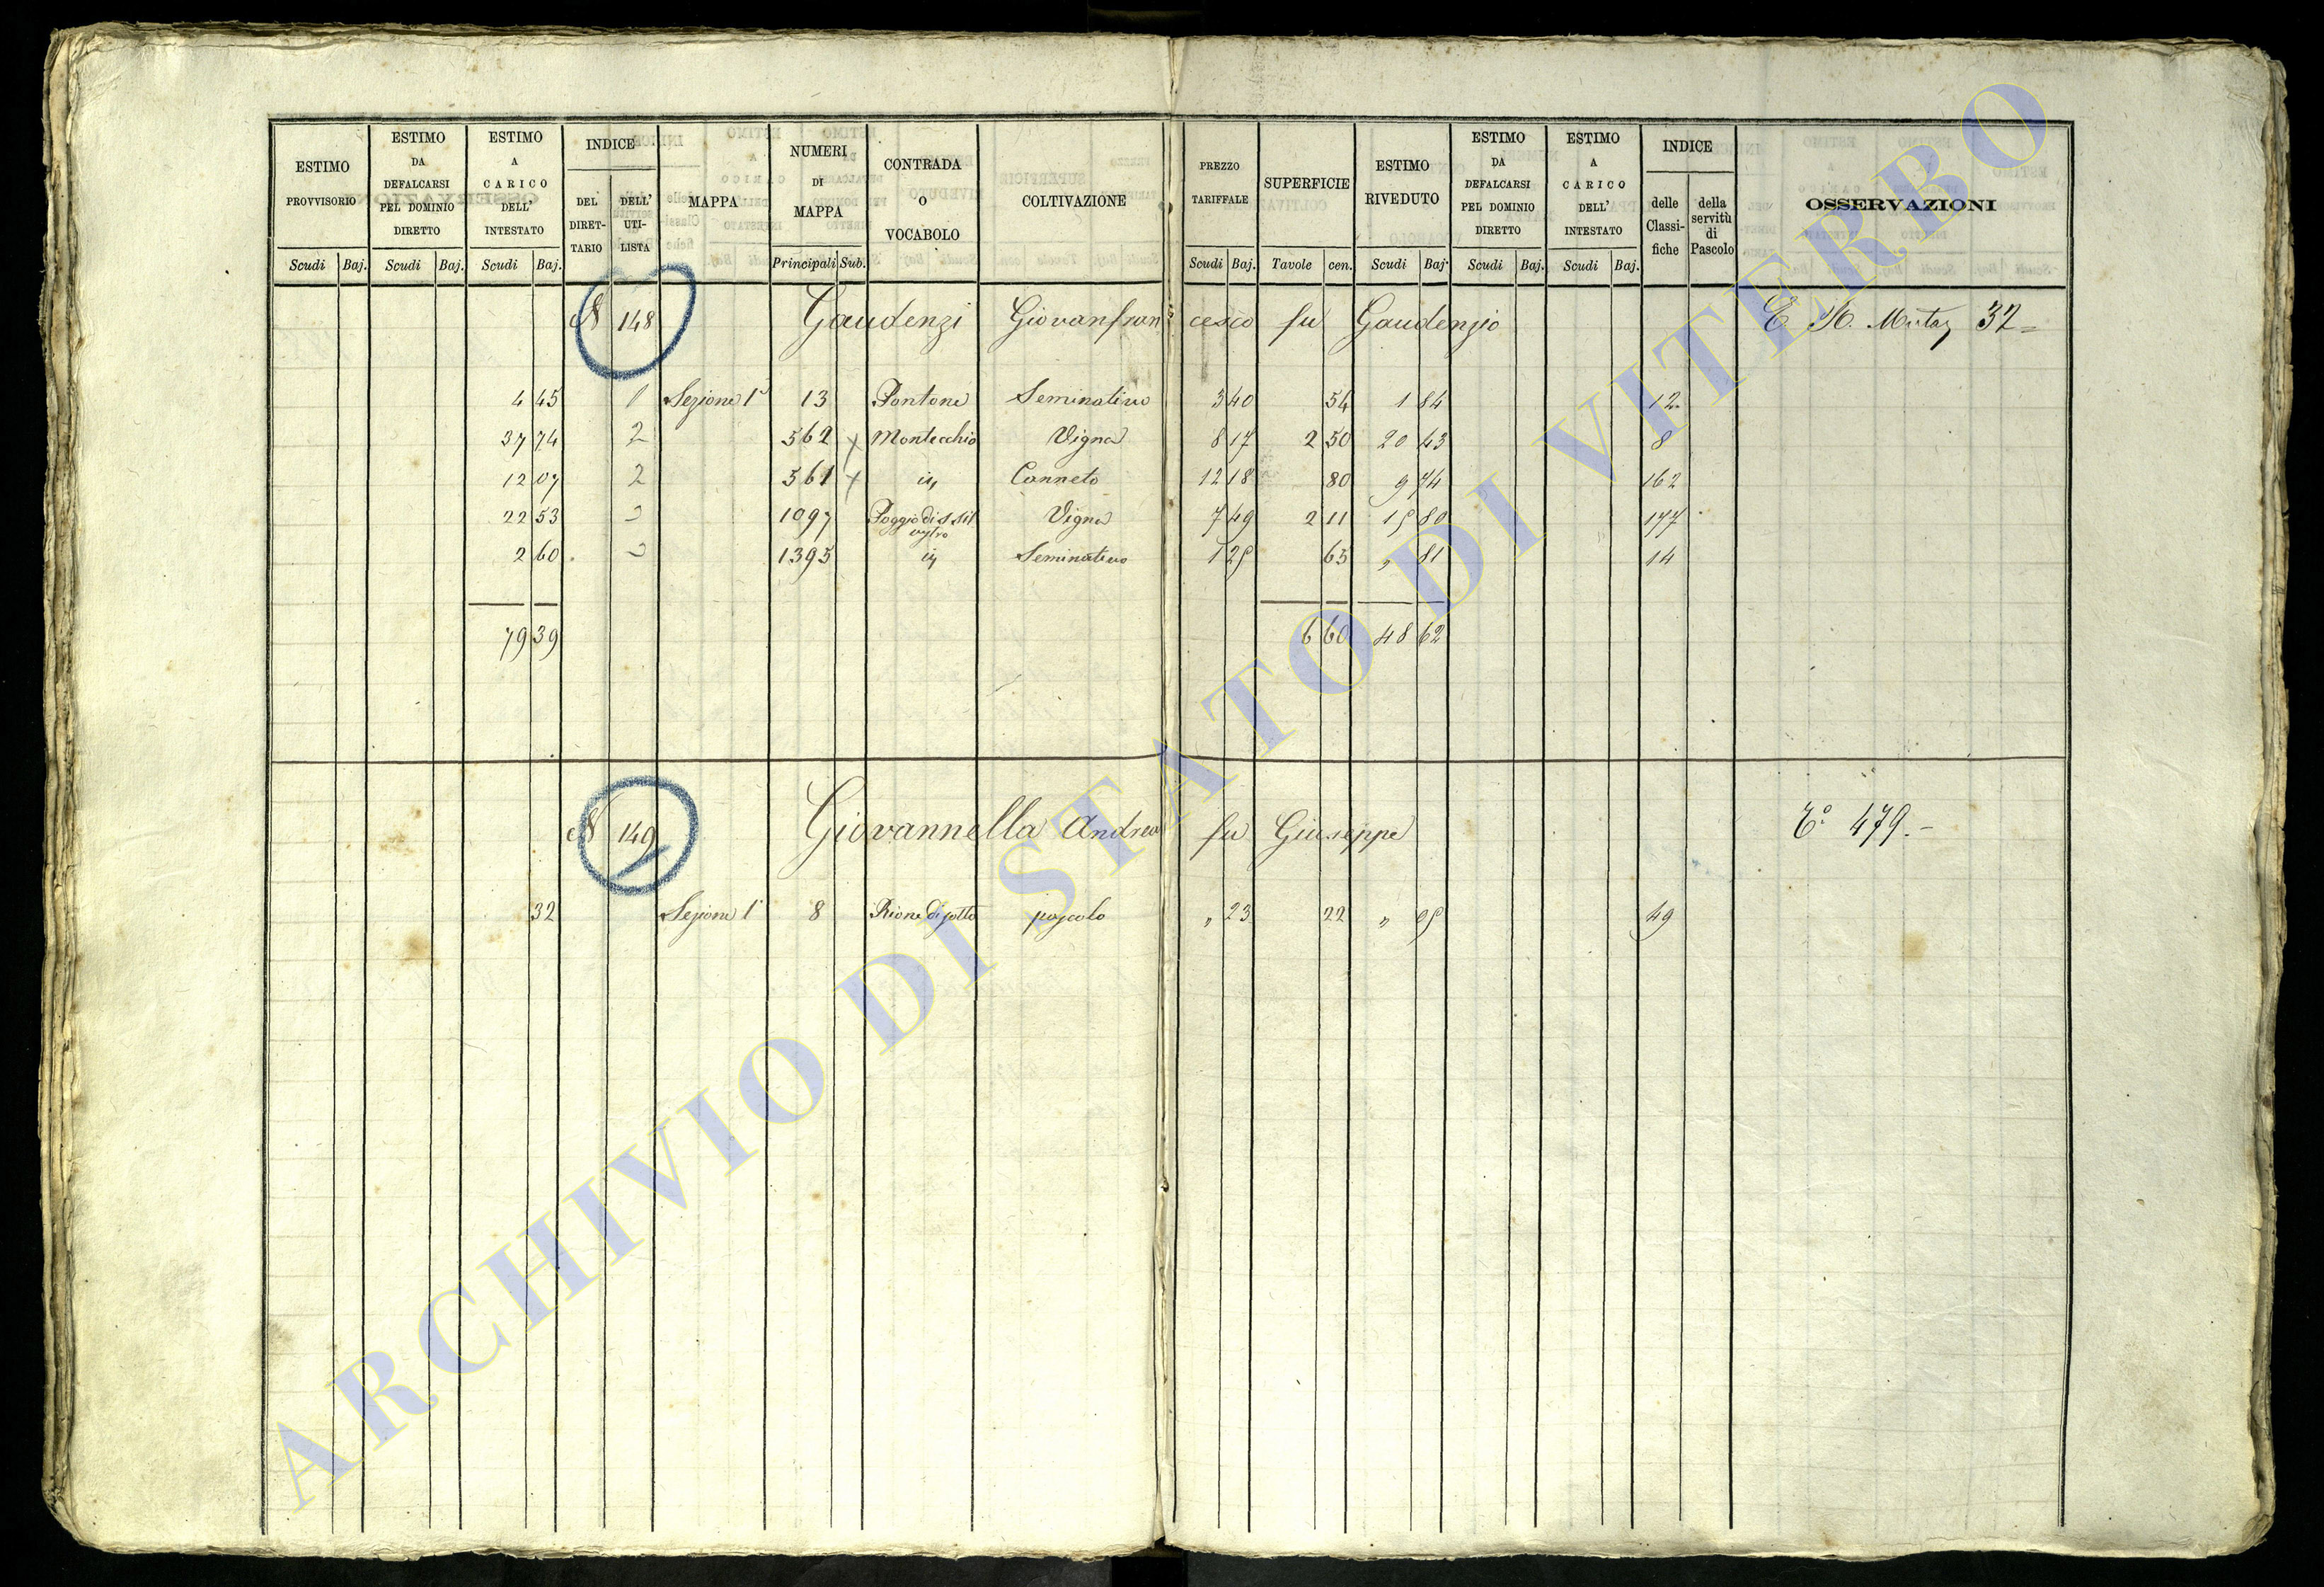 ESTIMO PROVVISORIO
ESTIMO DA DEFALCARSI PEL DOMINIO DIRETTO
ESTIMO A CARICO DELL' INTESTATO
INDICE
DEL DIRET-TARIO
DELL' UTI-LISTA
MAPPA
NUMERI DI MAPPA
CONTRADA O VOCABOLO
COLTIVAZIONE
PREZZO TARIFFALE
SUPERFICIE
ESTIMO RIVEDUTO
ESTIMO DA DEFALCARSI PEL DOMINIO DIRETTO
ESTIMO A CARICO DELL' INTESTATO
INDICE
delle Classi-fiche
della servitù di Pascolo
OSSERVAZIONI
Scudi Baj. Scudi Baj. Scudi Baj. Principali Sub. Scudi Baj. Tavole cen. Scudi Baj. Scudi Baj. Scudi Baj.
N 148 Gaudenzi Giovanfrancesco fu Gaudenzio 32
4 45 1 Sezione 1ª 13 Pontone Seminativo 3 40 54 1 84 12
37 74 2 562 x Montecchio Vigna 8 17 2 50 20 43 8
12 07 2 561 x Canneto 12 18 80 9 74 162
22 53 1097 Poggio di S. Silvestro Vigna 7 49 2 11 15 80 177
2 60 1395 Seminativo 1 25 65 " 81 14
79 39 6 60 48 62
N 149 Giovannella Andrea fu Giuseppe 479.
32 Sezione 1ª 8 Rione di sotto pascolo " 23 22 " 05 49
ARCHIVIO DI STATO DI VITERBO